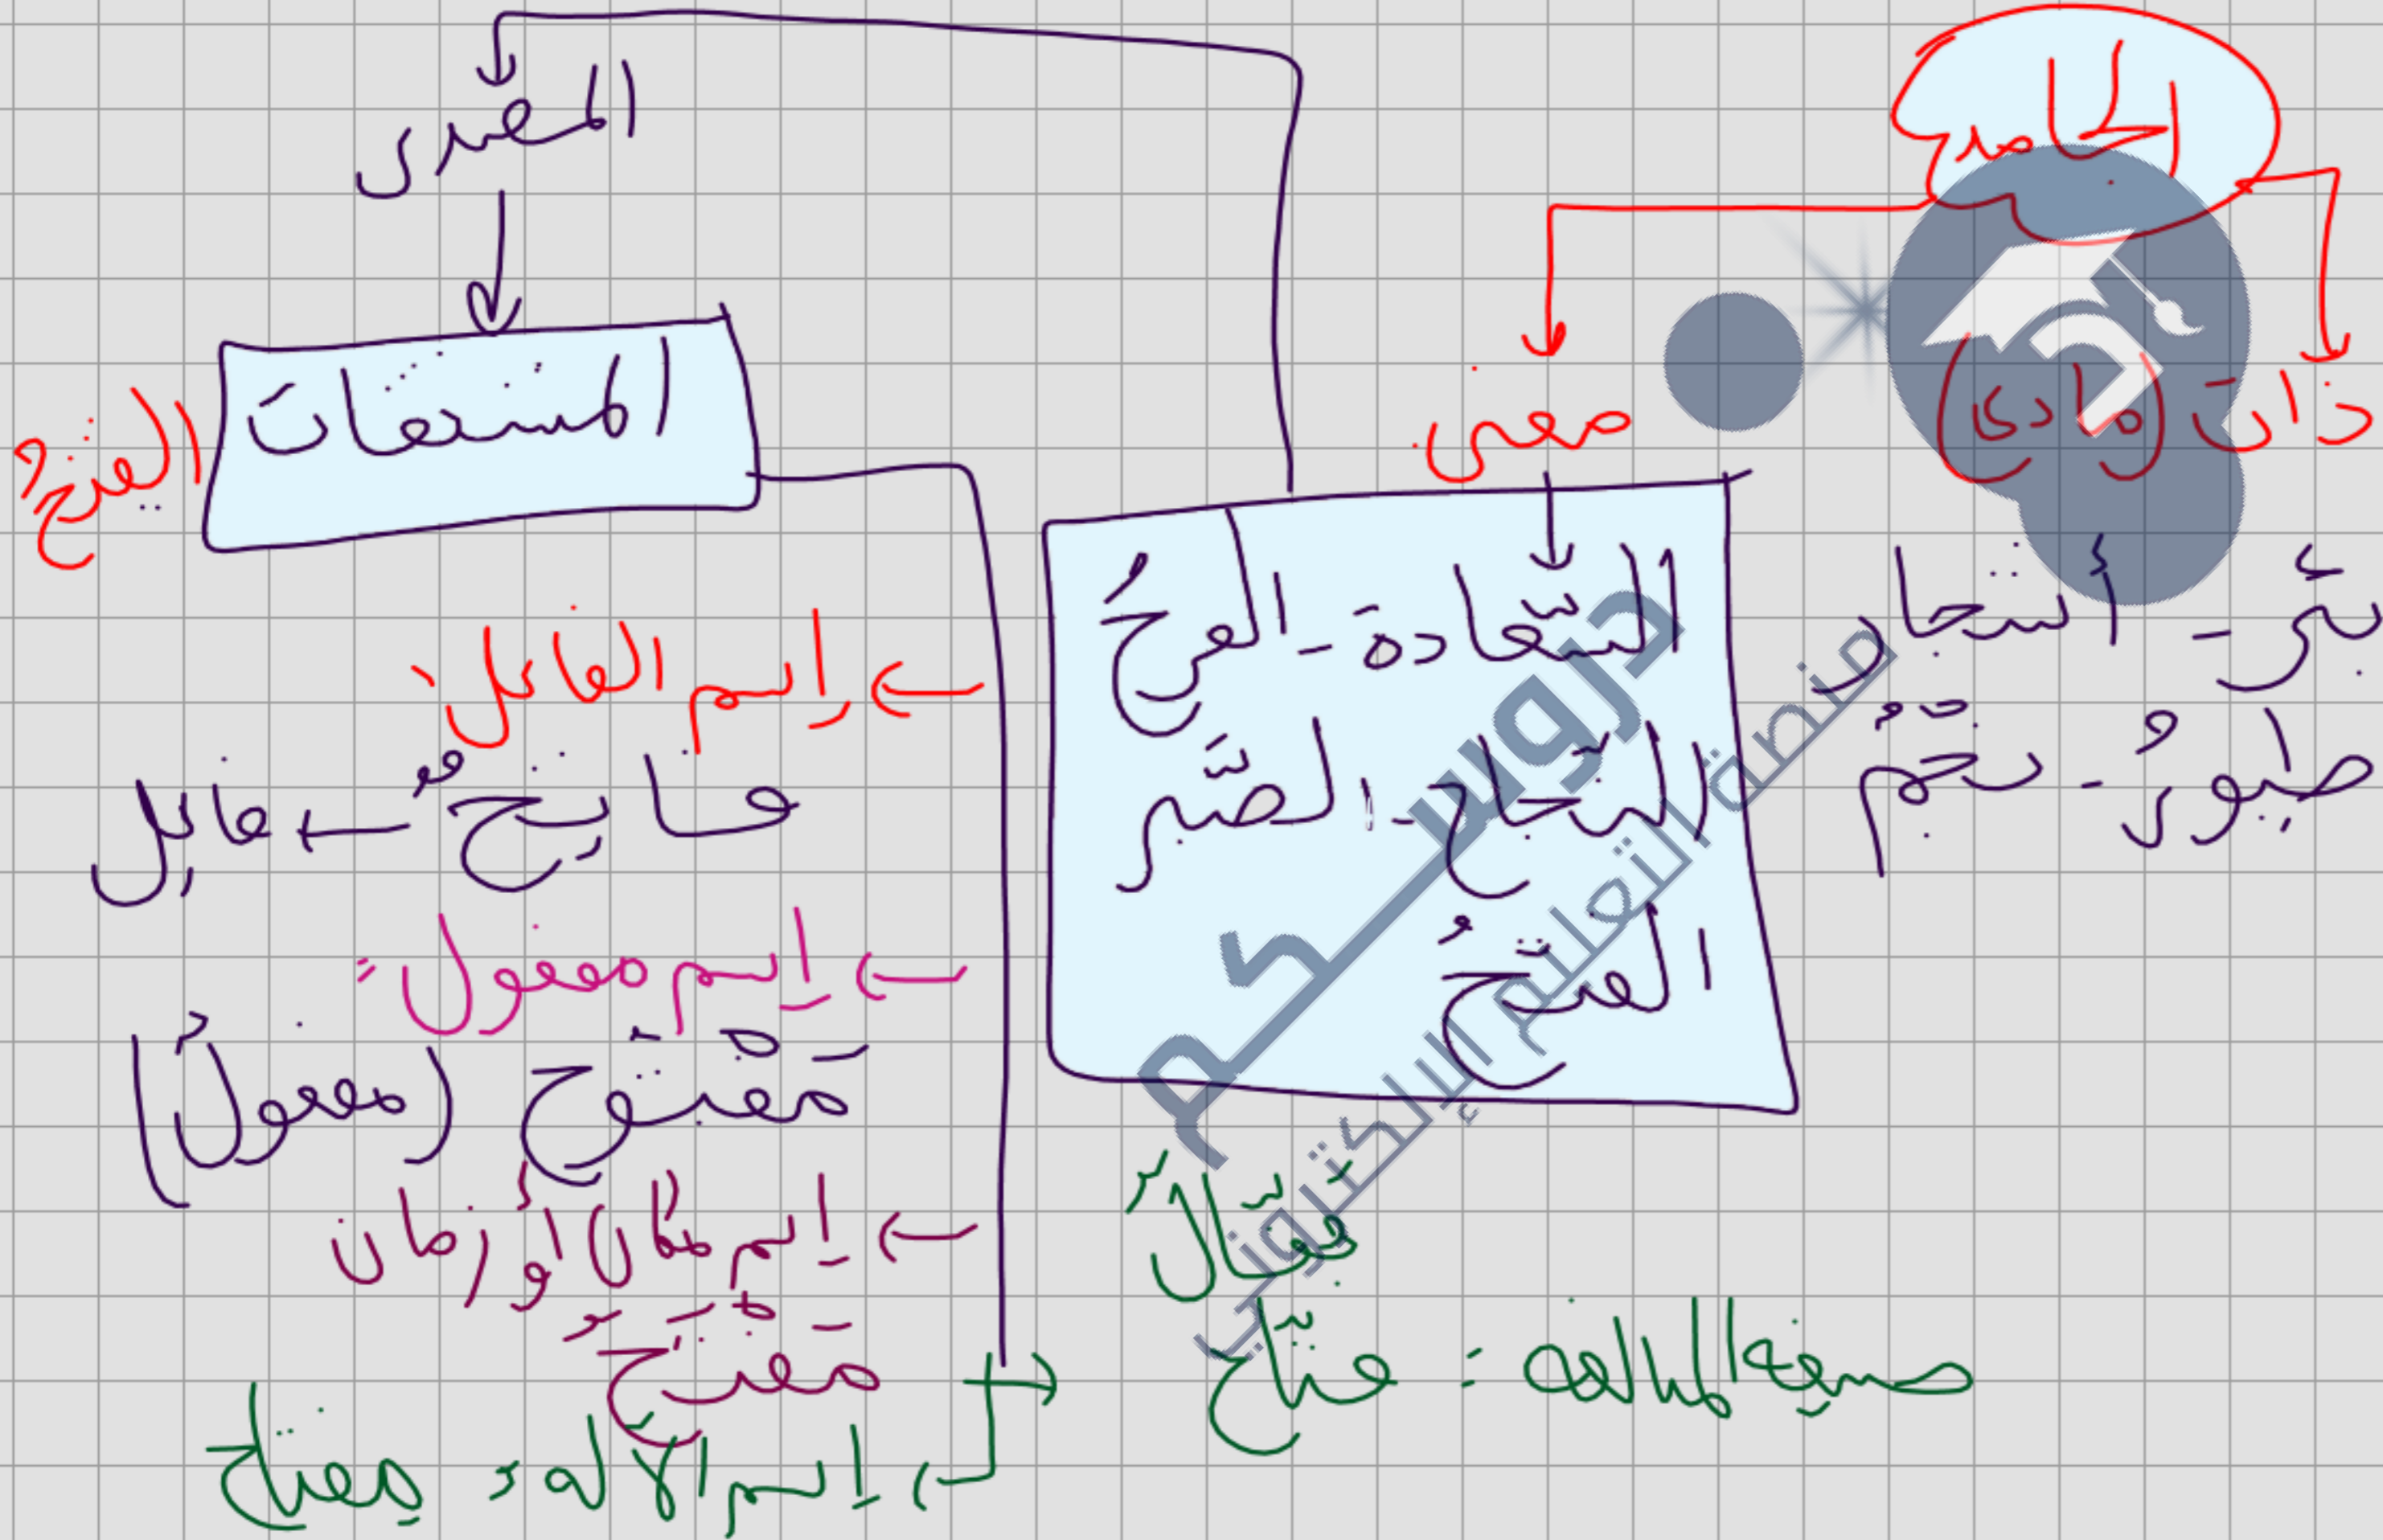 الجامد
ذات (مادي)
معنى
بئر - أشجار
طيور - نجم
السّعادة - الفرحُ
النّجاح - الصّبر
الفتحُ
المصدر
المشتقات
الفتح
← إسم الفاعل:
فاتِحٌ ← فاعِل
← إسم مفعول:
مفتوح (مفعولٌ)
← إسم مكان أو زمان
مَفْتَحٌ
← إسم الآلة: مِفتاح
فعّالٌ
صيغة المبالغة: فتّاح
دروسكم
منصة التعليم الإلكتروني